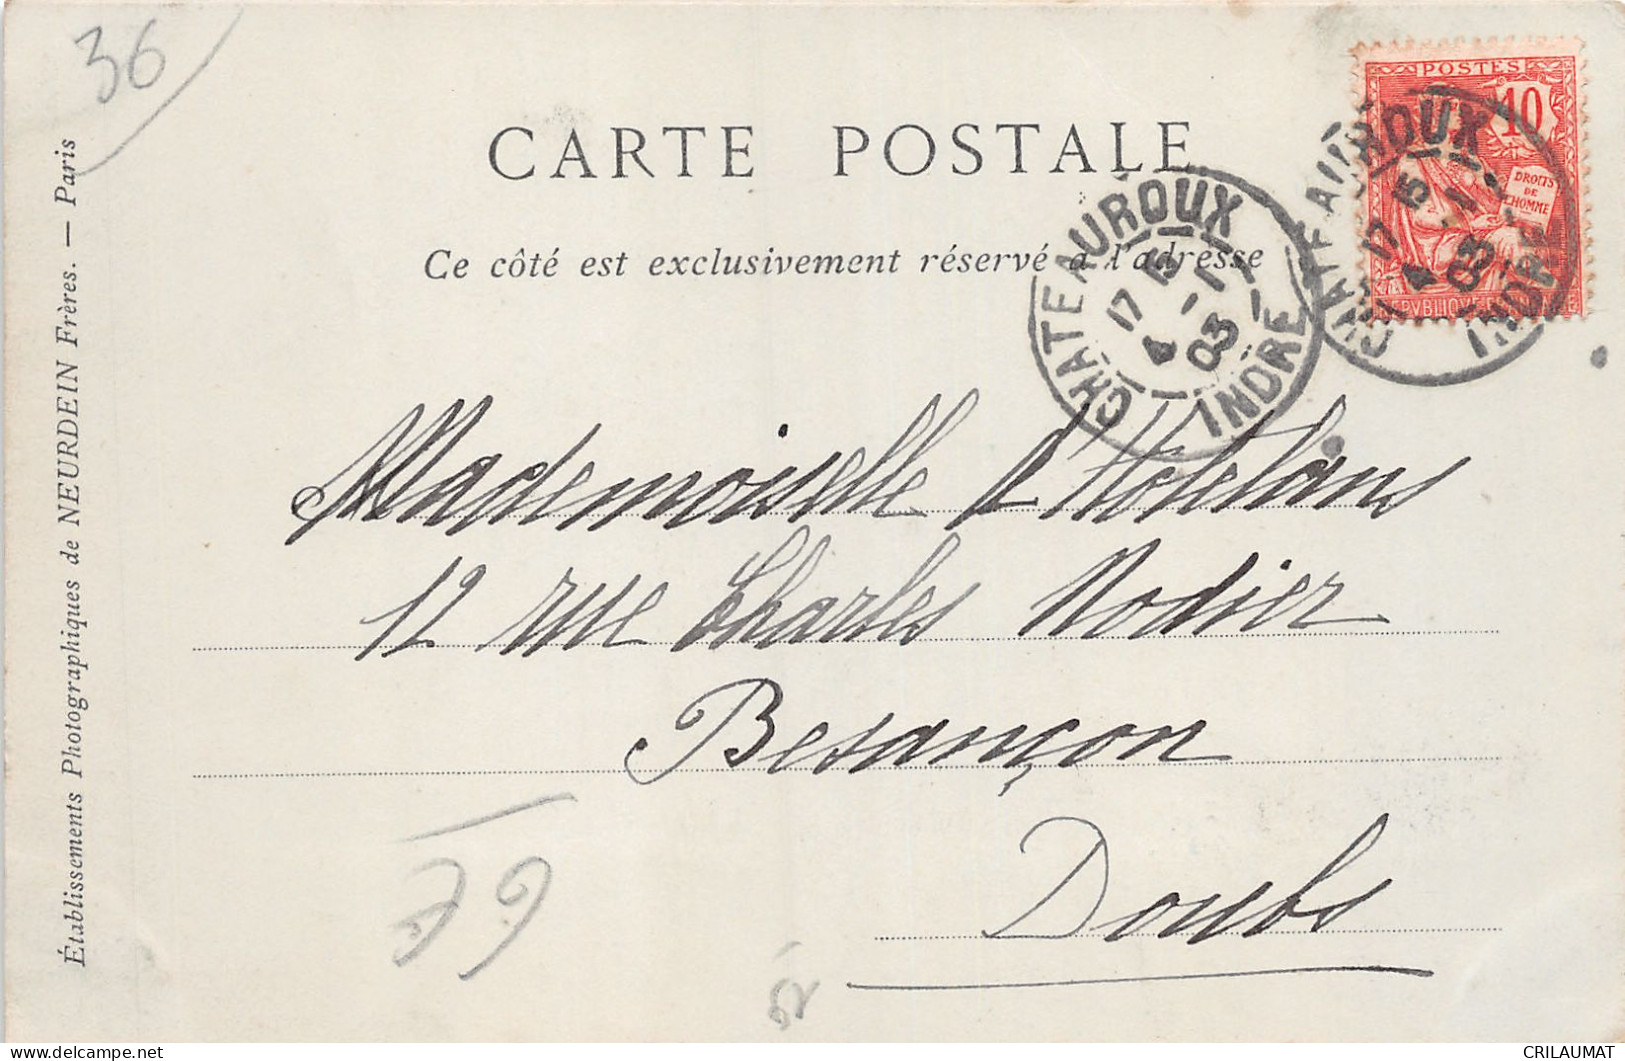 36
CARTE POSTALE
Ce côté est exclusivement réservé à l'adresse
POSTES
10
DROITS
DE
L'HOMME
CHATEAUROUX
17 15
4 -1
03
INDRE
CHATEAUROUX
17 15
4 -1
03
INDRE
Mademoiselle d'Hotelans
12 rue Charles Nodier
Besançon
Doubs
Établissements Photographiques de NEURDEIN Frères. — Paris
CRILAUMAT